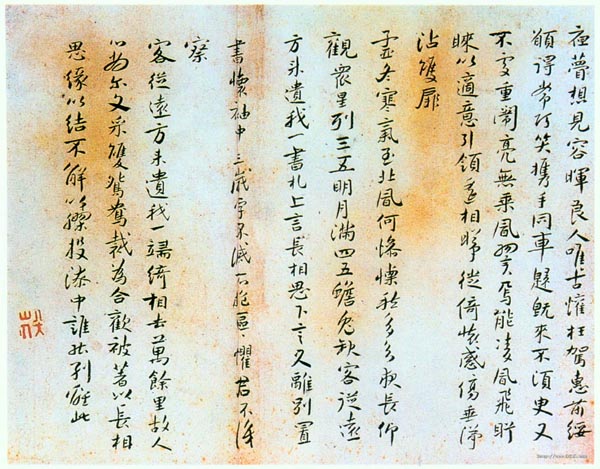 夜夢想見容暉良人唯古懽枉駕惠前綏
願得常巧笑携手同車歸既來不須臾又
不處重闈亮無晨風翼焉能凌風飛眄
睞以適意引領遙相睎徙倚懷感傷垂涕
沾雙扉
孟冬寒氣至北風何慘慄愁多知夜長仰
觀衆星列三五明月滿四五蟾兔缺客從遠
方來遺我一書札上言長相思下言久離別置
書懷袖中三歲字不滅一心抱區〻懼君不識
察
客從遠方來遺我一端綺相去萬餘里故人
心尚爾文采雙鴛鴦裁為合歡被著以長相
思緣以結不解以膠投漆中誰能別離此